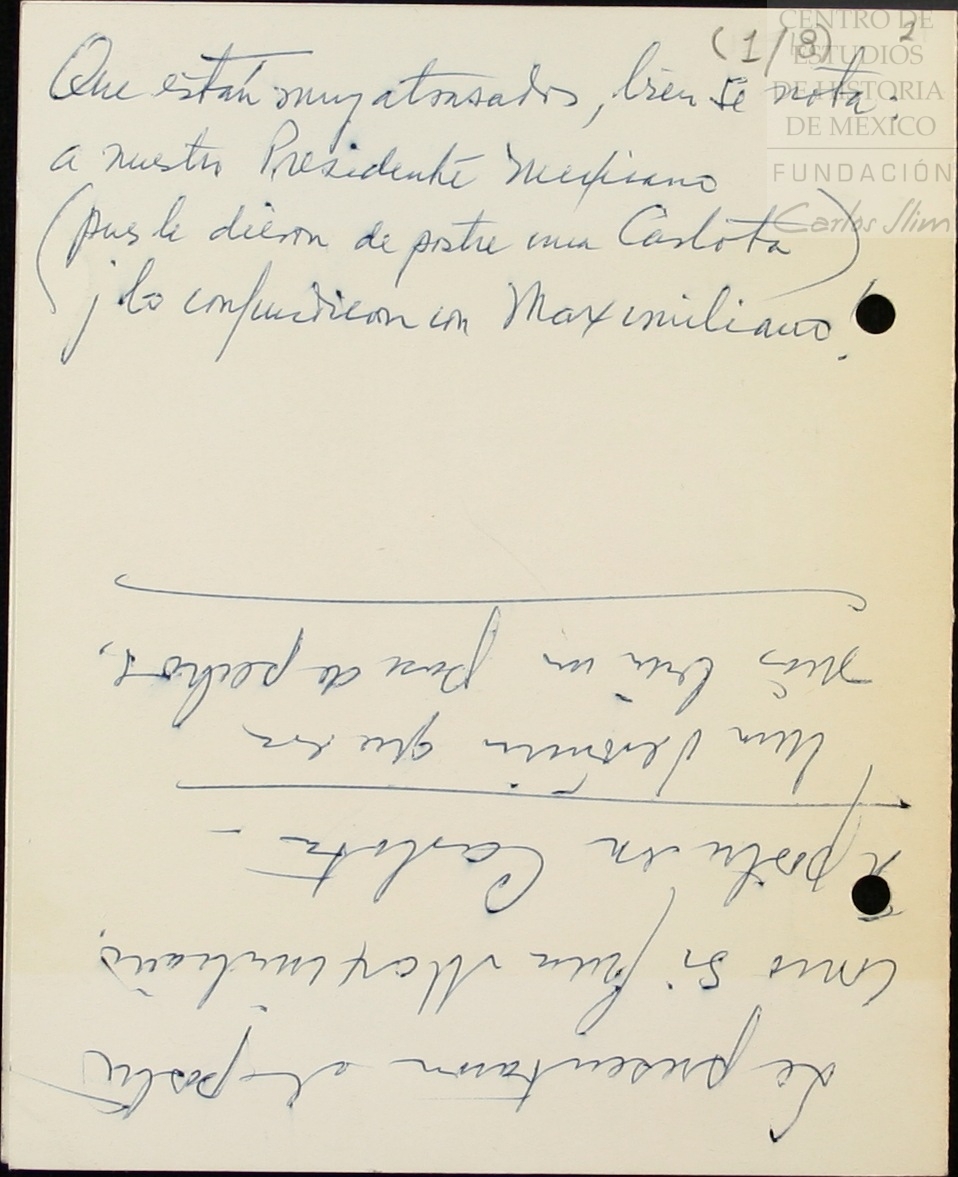 (1/8) 2
CENTRO DE
ESTUDIOS
DE HISTORIA
DE MÉXICO
FUNDACIÓN
Carlos Slim
Que están muy atrasados, bien se nota:
a nuestro Presidente Mexicano
(pues le dieron de postre una Carlota)
¡lo confundieron con Maximiliano!
Le presentaron el postre
como si fuera Maximiliano,
postre en Carlota –
Un que era
más bien un par de pechos,